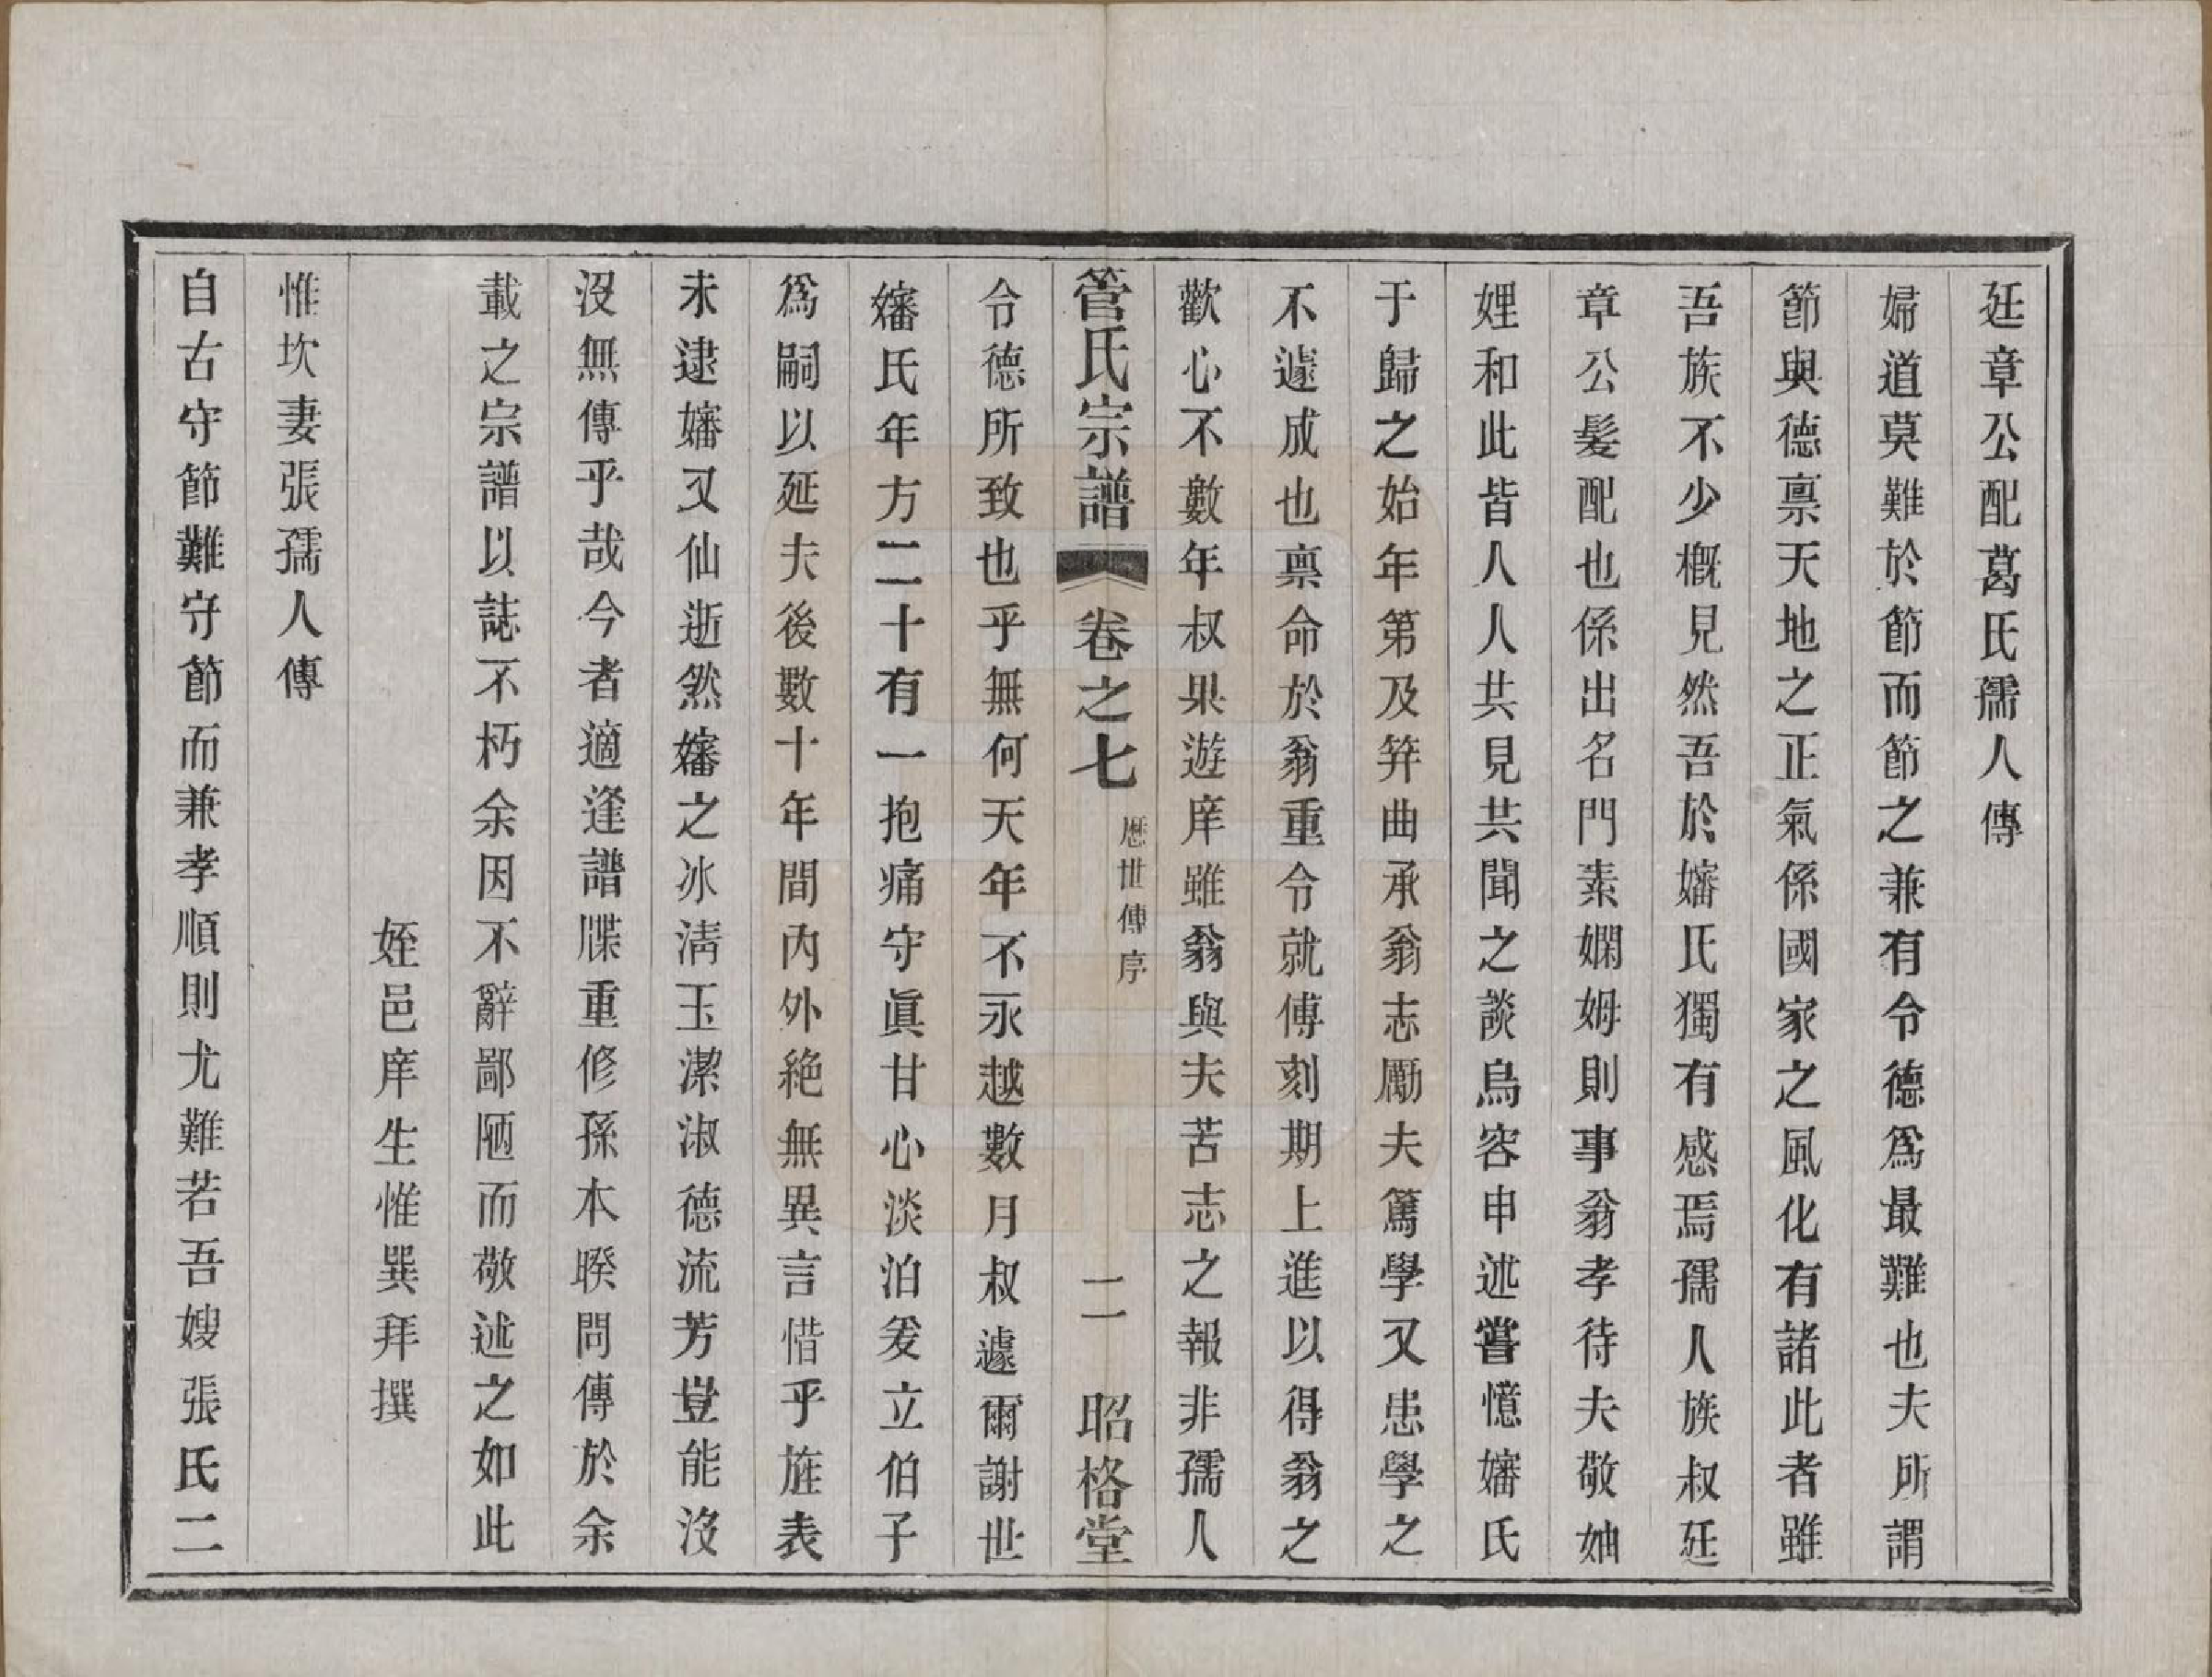 廷章公配葛氏孺人傳
婦道莫難於節而節之兼有令德爲最難也夫所謂
節與德禀天地之正氣係國家之風化有諸此者雖
吾族不少概見然吾於嬸氏獨有感焉孺人族叔廷
章公髮配也係出名門素嫻姆則事翁孝待夫敬妯
娌和此皆人人共見共聞之談烏容申述嘗憶嬸氏
于歸之始年第及筓曲承翁志勵夫篤學又患學之
不遽成也禀命於翁重令就傅刻期上進以得翁之
歡心不數年叔果遊庠雖翁與夫苦志之報非孺人
管氏宗譜 卷之七 歷世傳序 二 昭格堂
令德所致也乎無何天年不永越數月叔遽爾謝世
嬸氏年方二十有一抱痛守眞甘心淡泊爰立伯子
爲嗣以延夫後數十年間內外絶無異言惜乎旌表
未逮嬸又仙逝然嬸之冰淸玉潔淑德流芳豈能沒
沒無傳乎哉今者適逢譜牒重修孫木暌問傳於余
載之宗譜以誌不朽余因不辭鄙陋而敬述之如此
姪邑庠生惟巽拜撰
惟坎妻張孺人傳
自古守節難守節而兼孝順則尤難若吾嫂張氏二